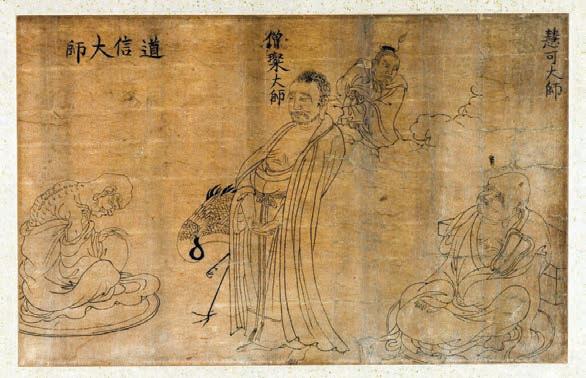 慧可大師
僧粲大師
道信大師